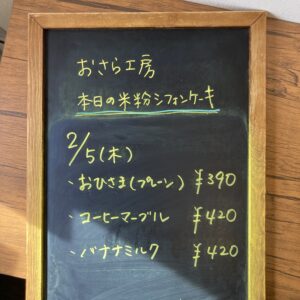 おさら工房
本日の米粉シフォンケーキ
2/5(木)
・おひさま(プレーン) ¥390
・コーヒーマーブル ¥420
・バナナミルク ¥420